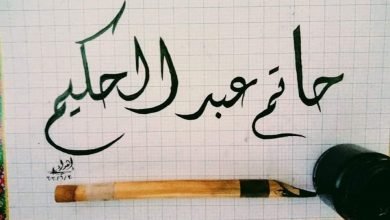 حاتم عبد الحكيم